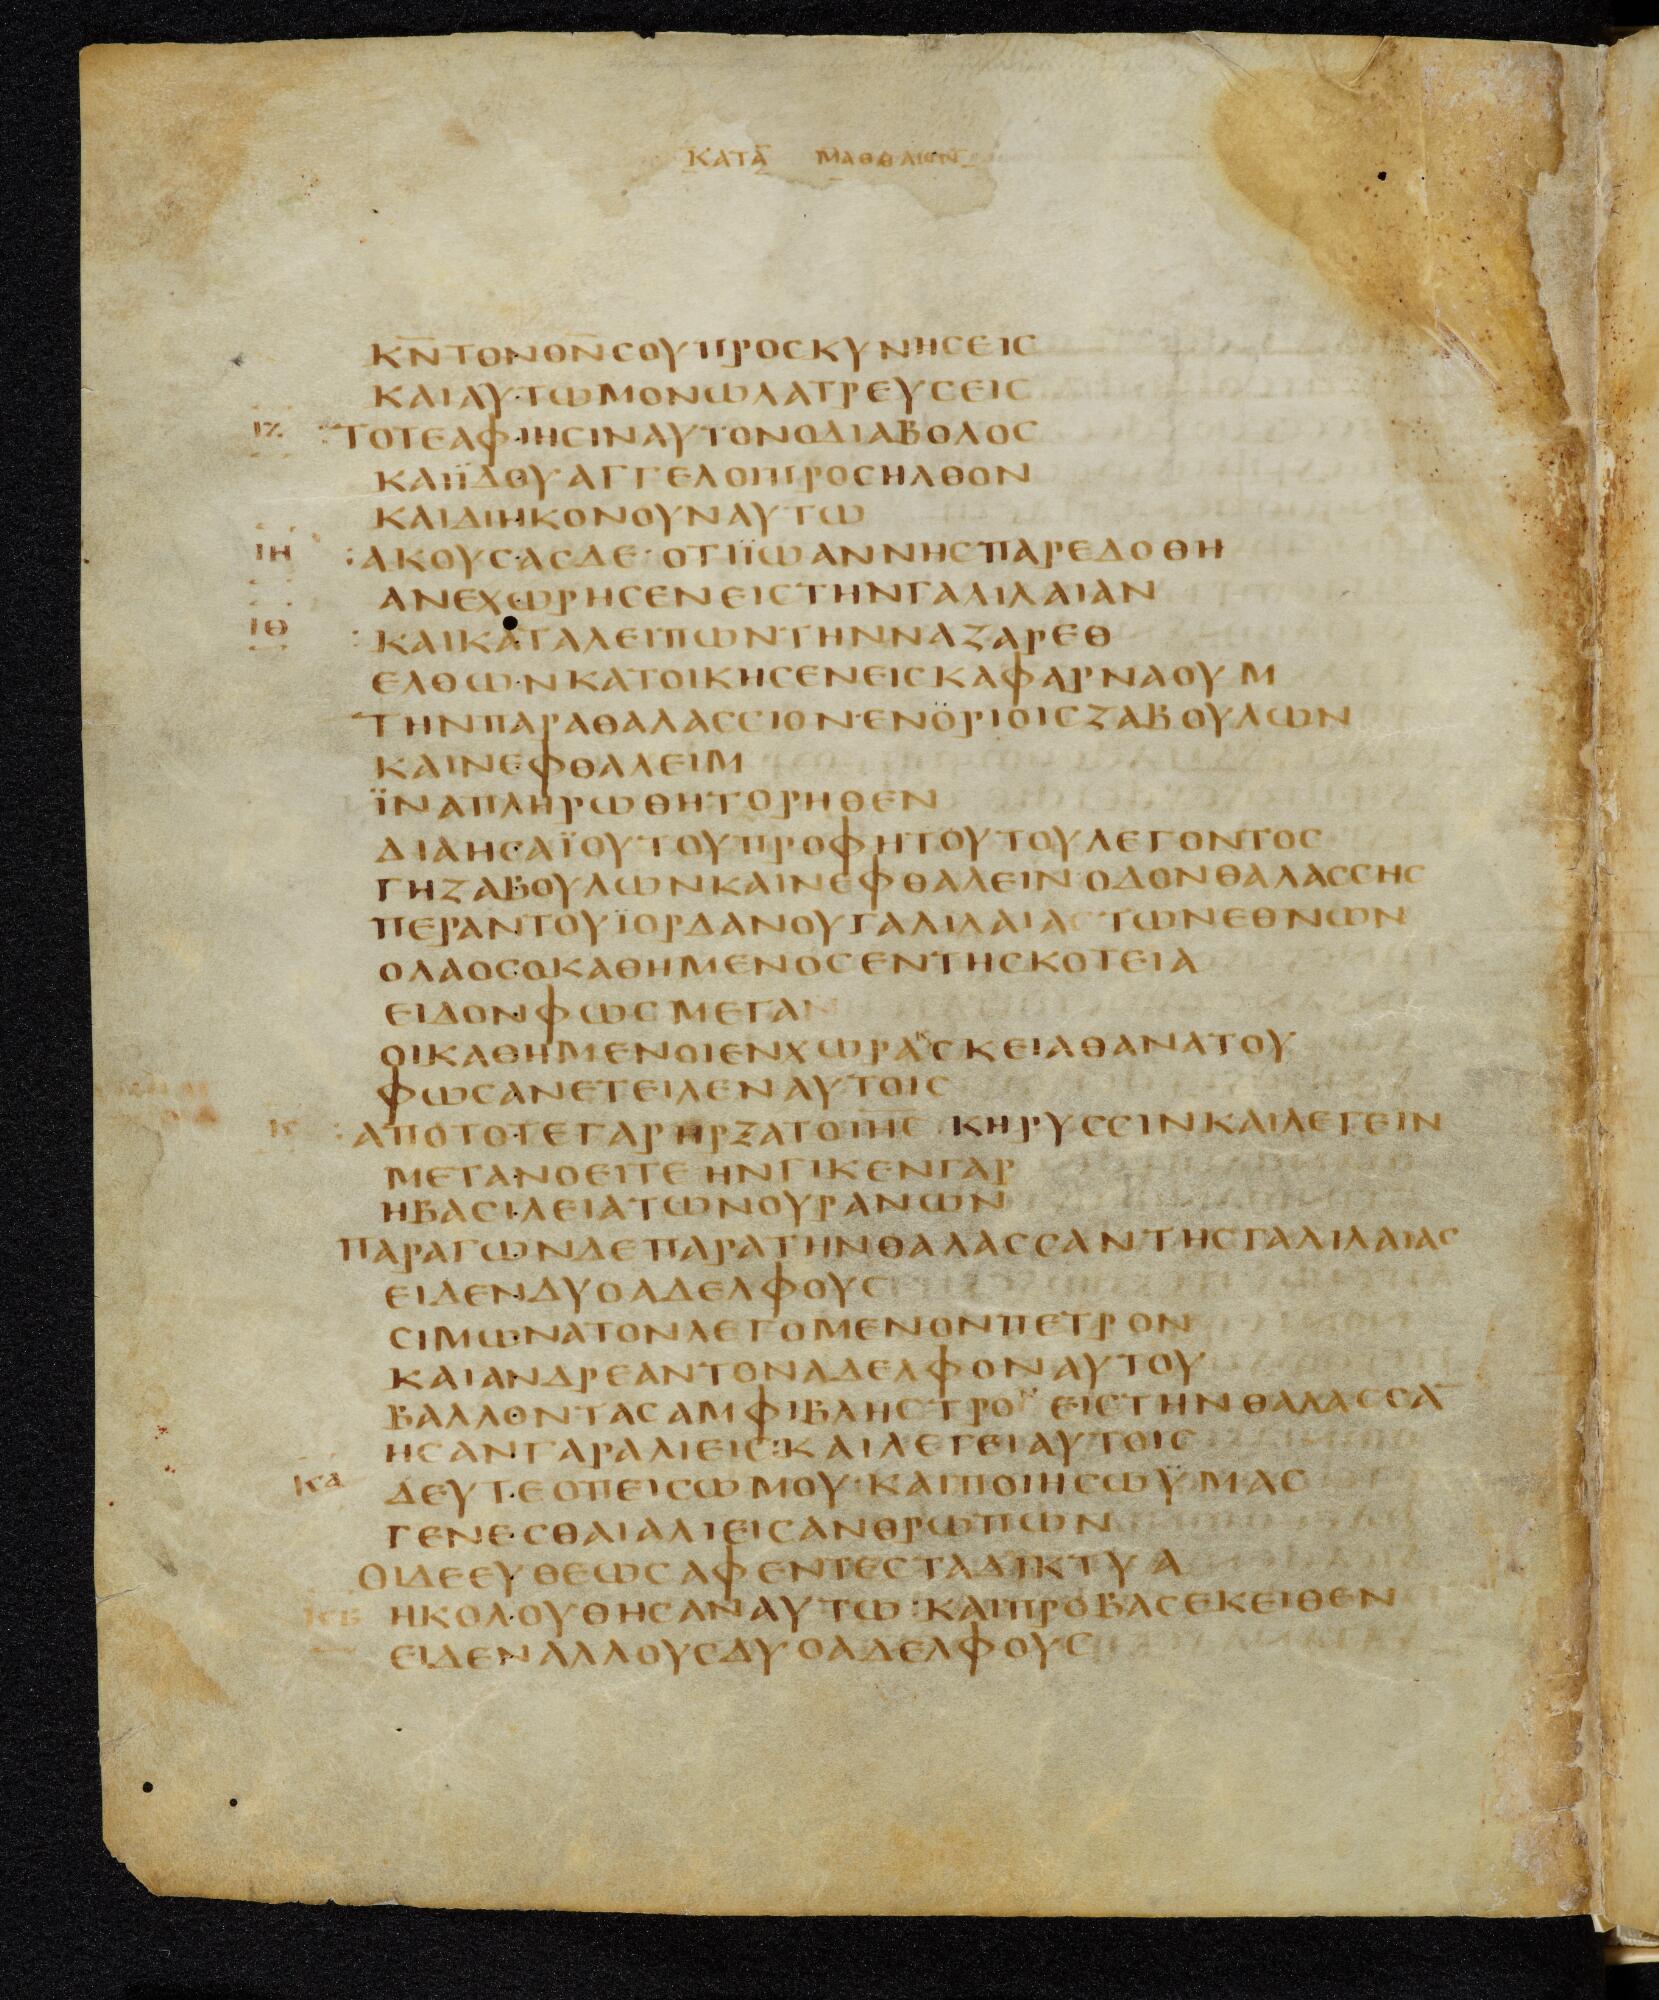 ΚΑΤΑ ΜΑΘΘΑΙΟΝ
Κ̅Ν̅ΤΟΝΘ̅Ν̅ϹΟΥΠΡΟϹΚΥΝΗϹΕΙϹ
ΚΑΙΑΥΤΩΜΟΝΩΛΑΤΡΕΥϹΕΙϹ
ΙΖ ΤΟΤΕΑΦΙΗϹΙΝΑΥΤΟΝΟΔΙΑΒΟΛΟϹ
ΚΑΙΪΔΟΥΑΓΓΕΛΟΙΠΡΟϹΗΛΘΟΝ
ΚΑΙΔΙΗΚΟΝΟΥΝΑΥΤΩ
ΙΗ :ΑΚΟΥϹΑϹΔΕ·ΟΤΙΪΩΑΝΝΗϹΠΑΡΕΔΟΘΗ
ΑΝΕΧΩΡΗϹΕΝΕΙϹΤΗΝΓΑΛΙΛΑΙΑΝ
ΙΘ :ΚΑΙΚΑΤΑΛΕΙΠΩΝΤΗΝΝΑΖΑΡΕΘ
ΕΛΘΩΝΚΑΤΟΙΚΗϹΕΝΕΙϹΚΑΦΑΡΝΑΟΥΜ
ΤΗΝΠΑΡΑΘΑΛΑϹϹΙΟΝ·ΕΝΟ̈ΡΙΟΙϹΖΑΒΟΥΛΩΝ
ΚΑΙΝΕΦΘΑΛΕΙΜ
ΪΝΑΠΛΗΡΩΘΗΤΟΡΗΘΕΝ
ΔΙΑΗϹΑΪΟΥΤΟΥΠΡΟΦΗΤΟΥΤΟΥΛΕΓΟΝΤΟϹ
ΓΗΖΑΒΟΥΛΩΝΚΑΙΝΕΦΘΑΛΕΙΝ·ΟΔΟΝΘΑΛΑϹϹΗϹ
ΠΕΡΑΝΤΟΥΪΟΡΔΑΝΟΥΓΑΛΙΛΑΙΑϹΤΩΝΕΘΝΩΝ
ΟΛΑΟϹΟΚΑΘΗΜΕΝΟϹΕΝΤΗϹΚΟΤΕΙΑ
ΕΙΔΟΝΦΩϹΜΕΓΑΝ
ΟΙΚΑΘΗΜΕΝΟΙΕΝΧΩΡΑϹΚΕΙΑΘΑΝΑΤΟΥ
ΦΩϹΑΝΕΤΕΙΛΕΝΑΥΤΟΙϹ
Κ :ΑΠΟΤΟΤΕΓΑΡΗΡΖΑΤΟΙ̅Η̅Ϲ̅ ΚΗΡΥϹϹΙΝΚΑΙΛΕΓΕΙΝ
ΜΕΤΑΝΟΕΙΤΕ ΗΝΓΙΚΕΝΓΑΡ
ΗΒΑϹΙΛΕΙΑΤΩΝΟΥΡΑΝΩΝ
ΠΑΡΑΓΩΝΔΕΠΑΡΑΤΗΝΘΑΛΑϹϹΑΝΤΗϹΓΑΛΙΛΑΙΑϹ
ΕΙΔΕΝΔΥΟΑΔΕΛΦΟΥϹ
ϹΙΜΩΝΑΤΟΝΛΕΓΟΜΕΝΟΝΠΕΤΡΟΝ
ΚΑΙΑΝΔΡΕΑΝΤΟΝΑΔΕΛΦΟΝΑΥΤΟΥ
ΒΑΛΛΟΝΤΑϹΑΜΦΙΒΛΗϹΤΡΟΝ ΕΙϹΤΗΝΘΑΛΑϹϹΑ̅
ΗϹΑΝΓΑΡΑΛΙΕΙϹ:ΚΑΙΛΕΓΕΙΑΥΤΟΙϹ
ΚΑ ΔΕΥΤΕΟΠΕΙϹΩΜΟΥ·ΚΑΙΠΟΙΗϹΩΫΜΑϹ
ΓΕΝΕϹΘΑΙΑΛΙΕΙϹΑΝΘΡΩΠΩΝ
ΟΙΔΕΕΥΘΕΩϹΑΦΕΝΤΕϹΤΑΔΙΚΤΥΑ
ΚΒ ΗΚΟΛΟΥΘΗϹΑΝΑΥΤΩ:ΚΑΙΠΡΟΒΑϹΕΚΕΙΘΕΝ
ΕΙΔΕΝΑΛΛΟΥϹΔΥΟΑΔΕΛΦΟΥϹ